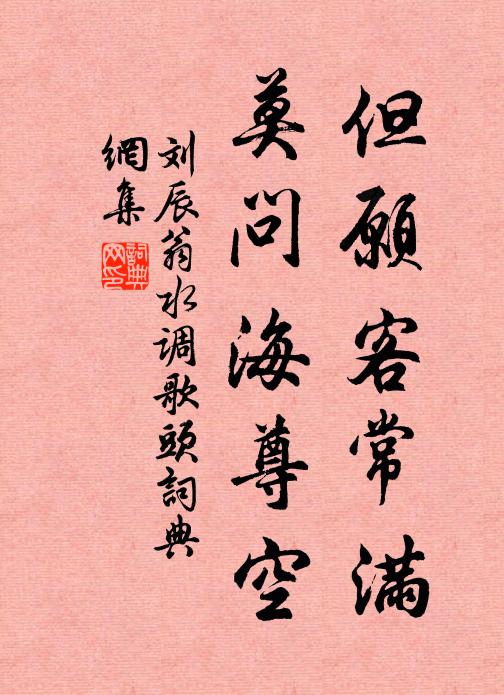 但願客常滿
莫问海尊空
刘辰翁水调歌頭詞典
網集
詞典
網印